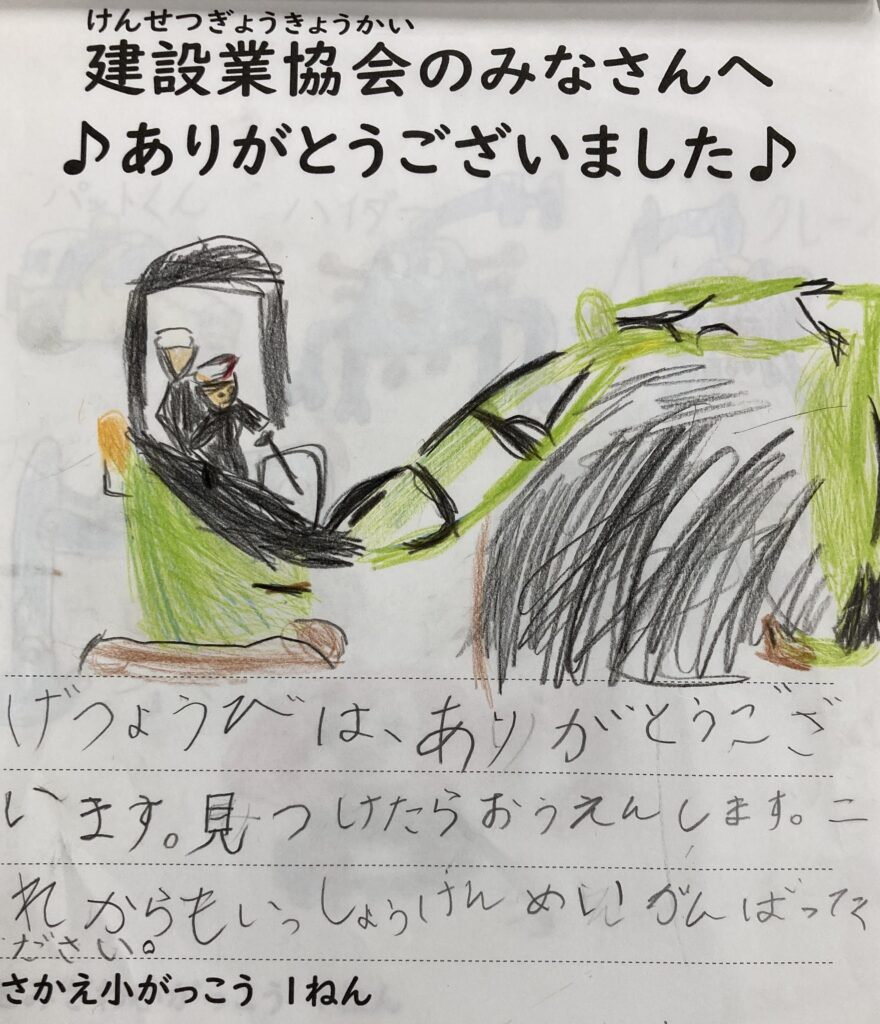 けんせつぎょうきょうかい
建設業協会のみなさんへ
♪ありがとうございました♪
げつょうびは、ありがとうござ
います。見つけたらおうえんします。こ
れからもいっしょうけんめいがんばってく
ださい。
さかえ小がっこう 1ねん